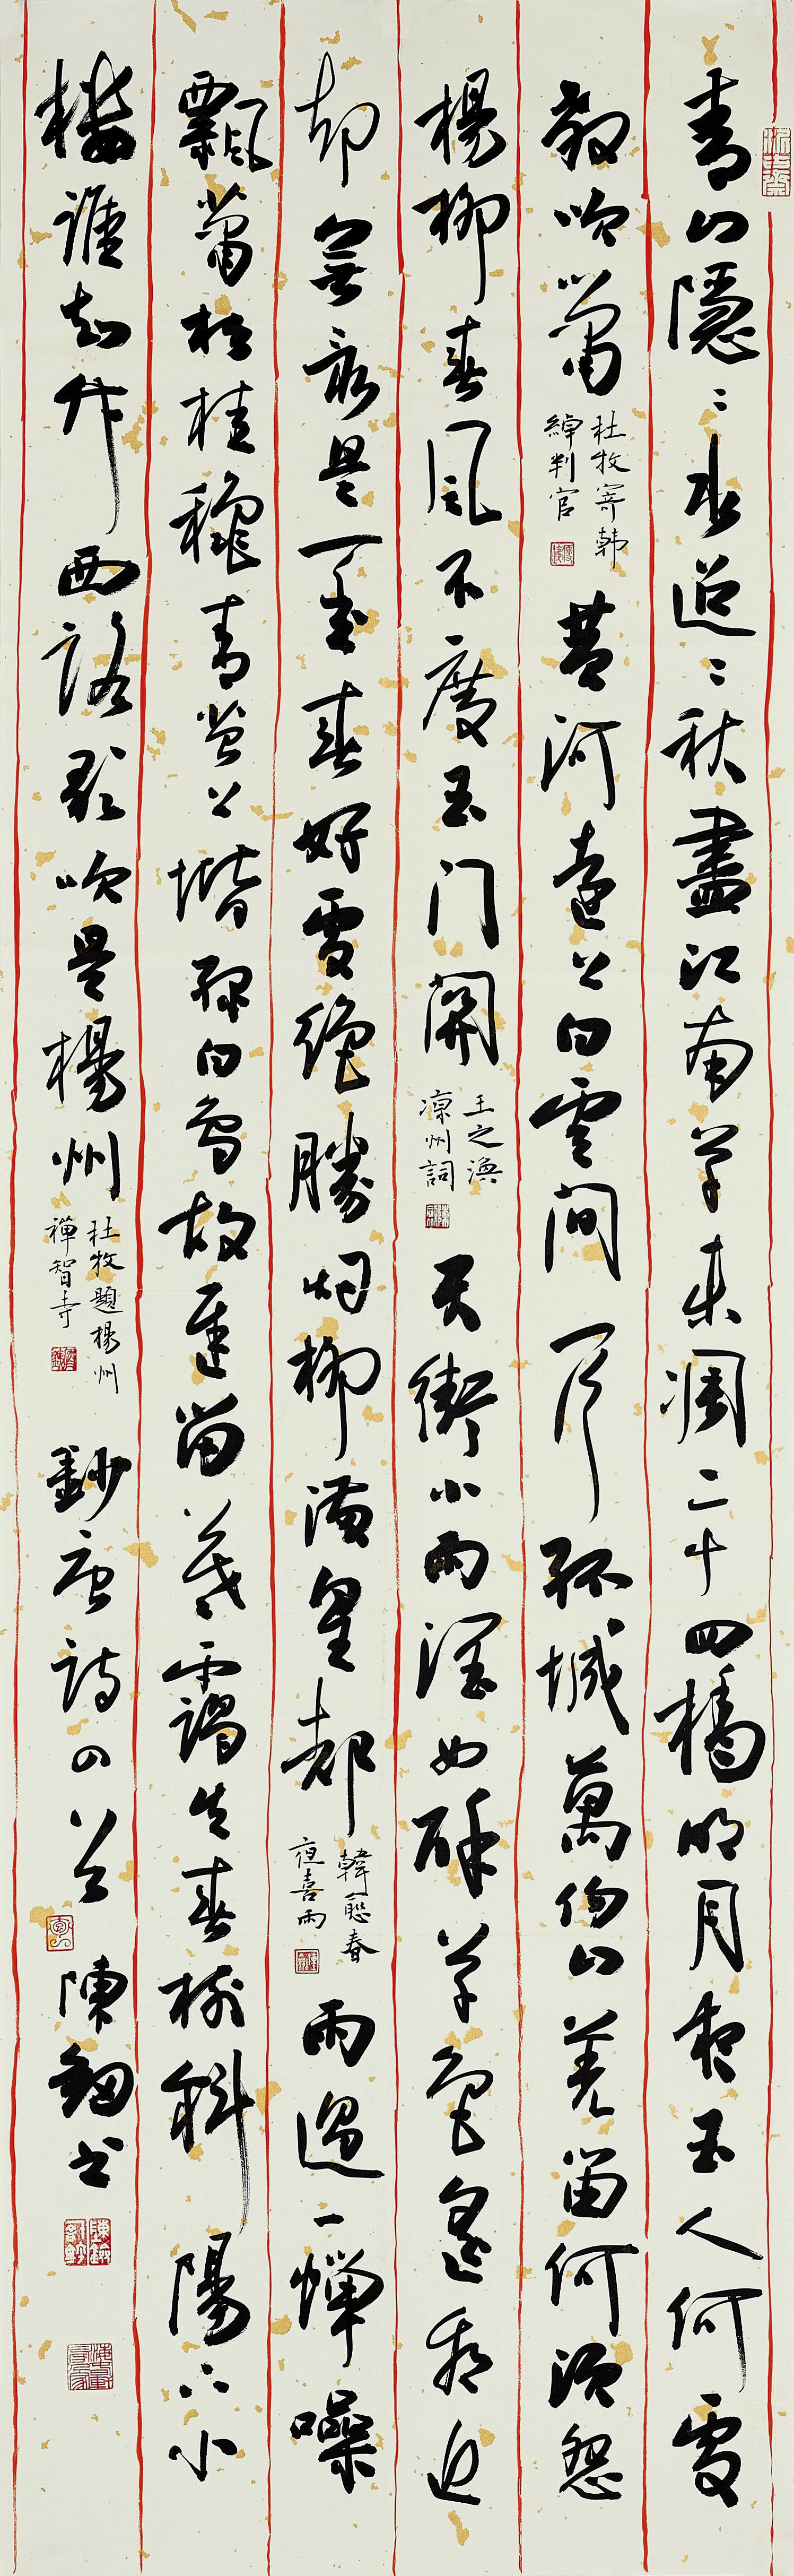 青山隱々水迢々秋盡江南草未凋二十四橋明月夜玉人何處
教吹簫
杜牧寄韩
綽判官
黃河遠上白雲間一片孤城萬仞山羌笛何須怨
楊柳春風不度玉门開
王之渙
凉州詞
天街小雨潤如酥草色遙看近
却無最是一年春好處絕勝烟柳滿皇都
韓愈春
夜喜雨
雨過一蟬噪
飄蕭松桂穐青苔上階綠白鳥故遲留暮靄生春樹斜陽下小
樓誰知竹西路歌吹是楊州
杜牧題楊州
禪智寺
鈔唐詩四首
陳釼書